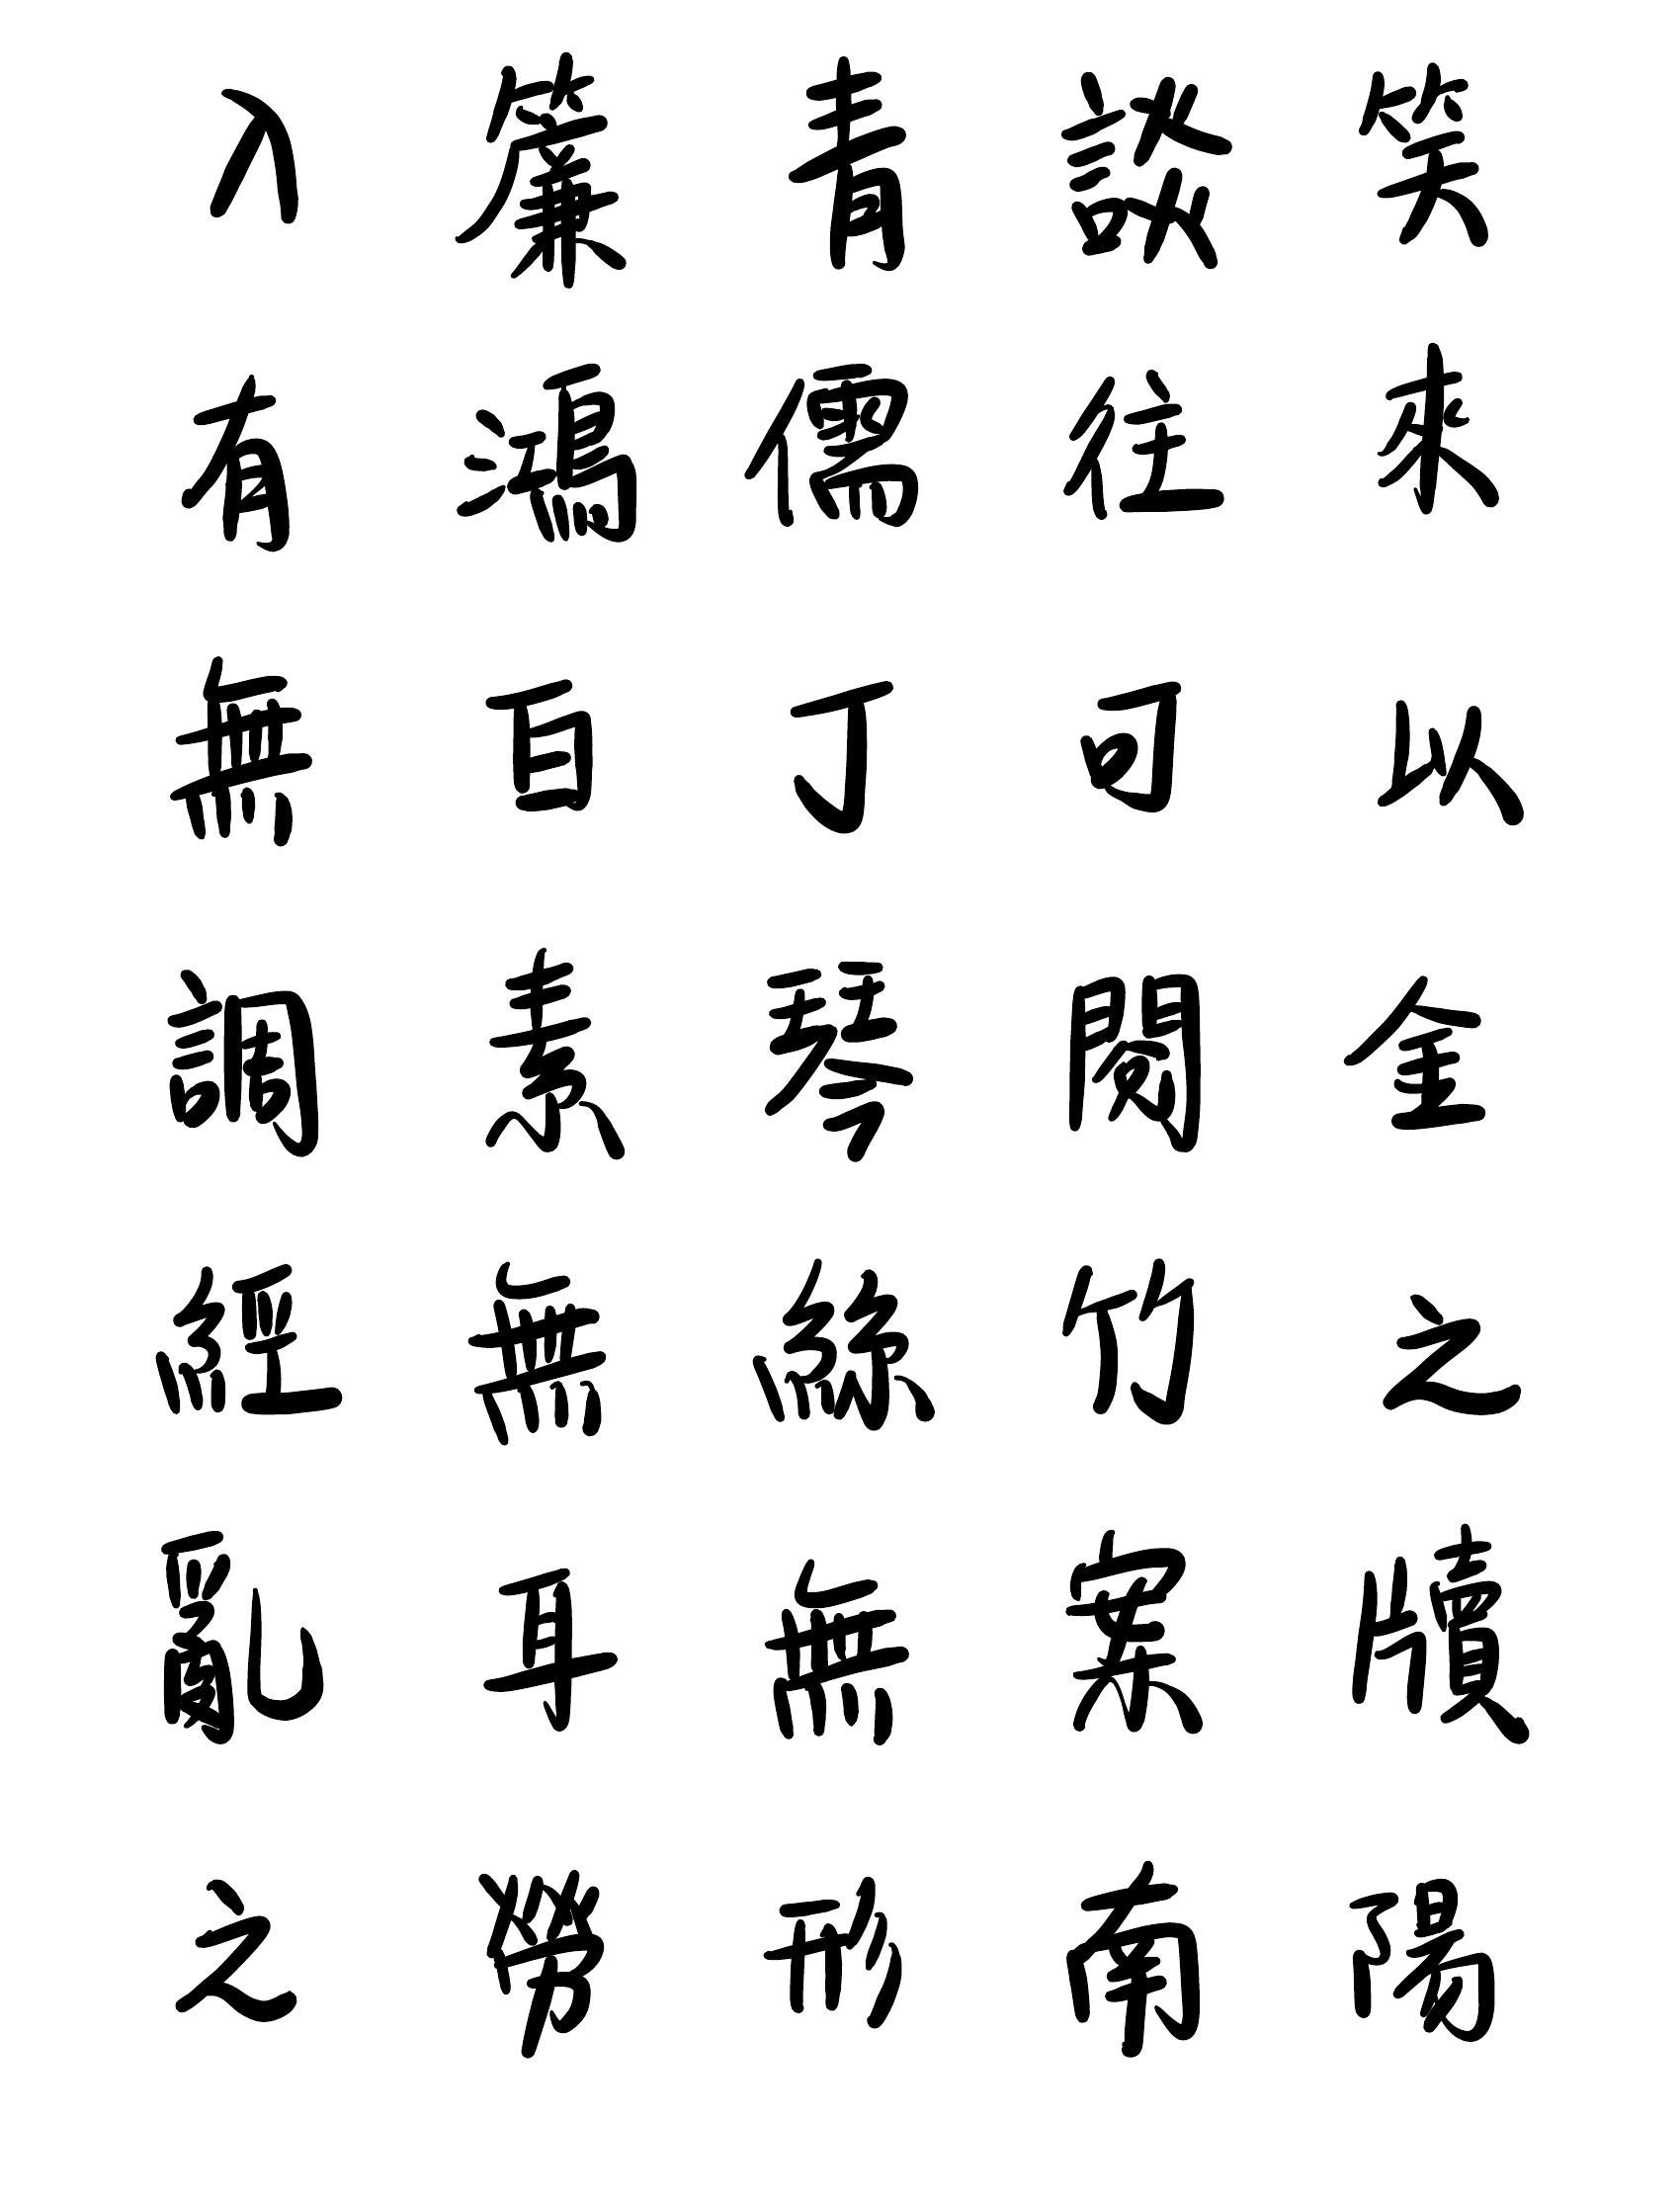 入簾青談笑
有鴻儒往來
無白丁可以
調素琴閱金
經無絲竹之
亂耳無案牘
之勞形南陽